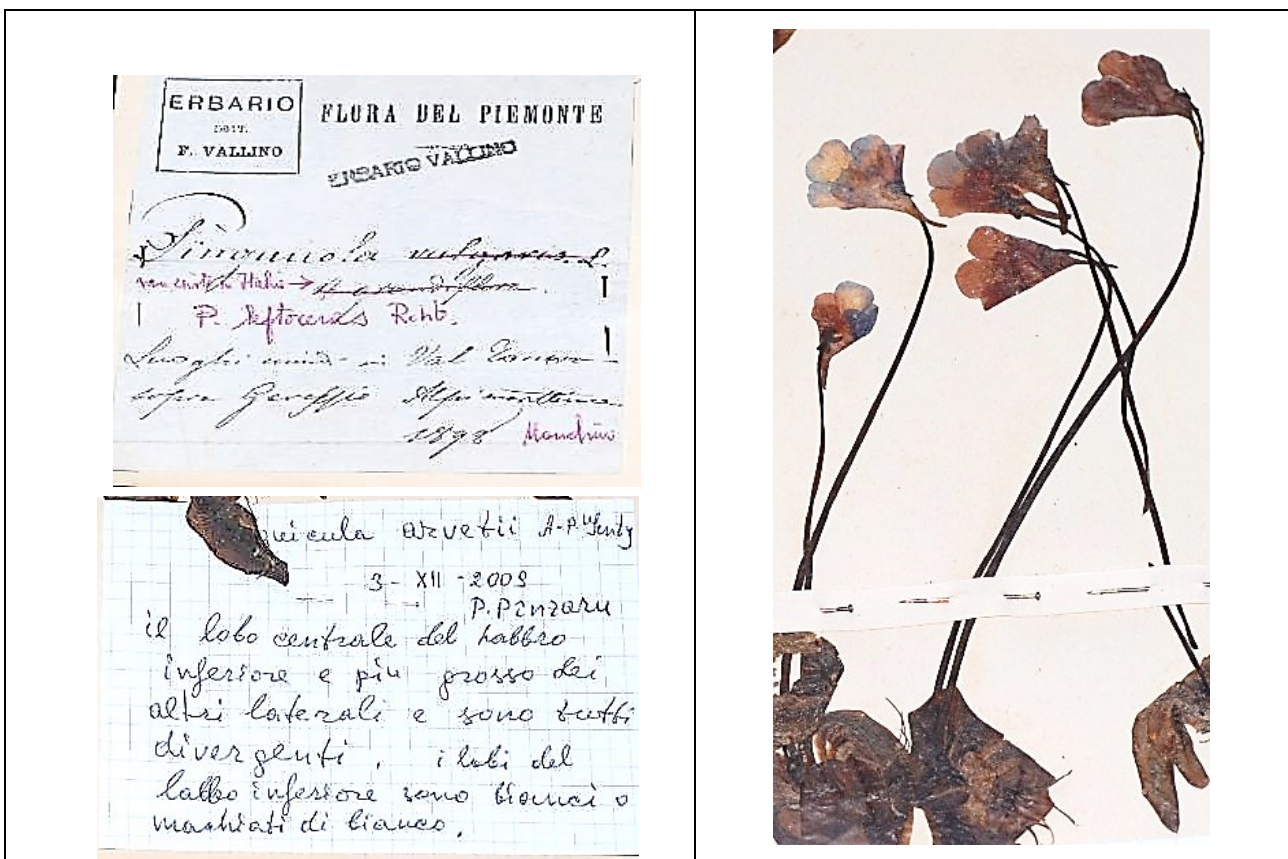 ERBARIO
DOTT.
F. VALLINO
FLORA DEL PIEMONTE
ERBARIO VALLINO
Pinguicola vulgaris L.
non esiste in Italia → grandiflora.
P. leptoceras Rchb.
Luoghi umidi in Val Tanaro
sopra Garessio Alpi marittime
1898
uicula arvetii A-P
3 - XII - 2009
P. Pînzaru
il lobo centrale del labbro
inferiore e più grosso dei
altri laterali e sono tutti
divergenti, i lobi del
labbo inferiore sono bianci o
machiati di bianco.